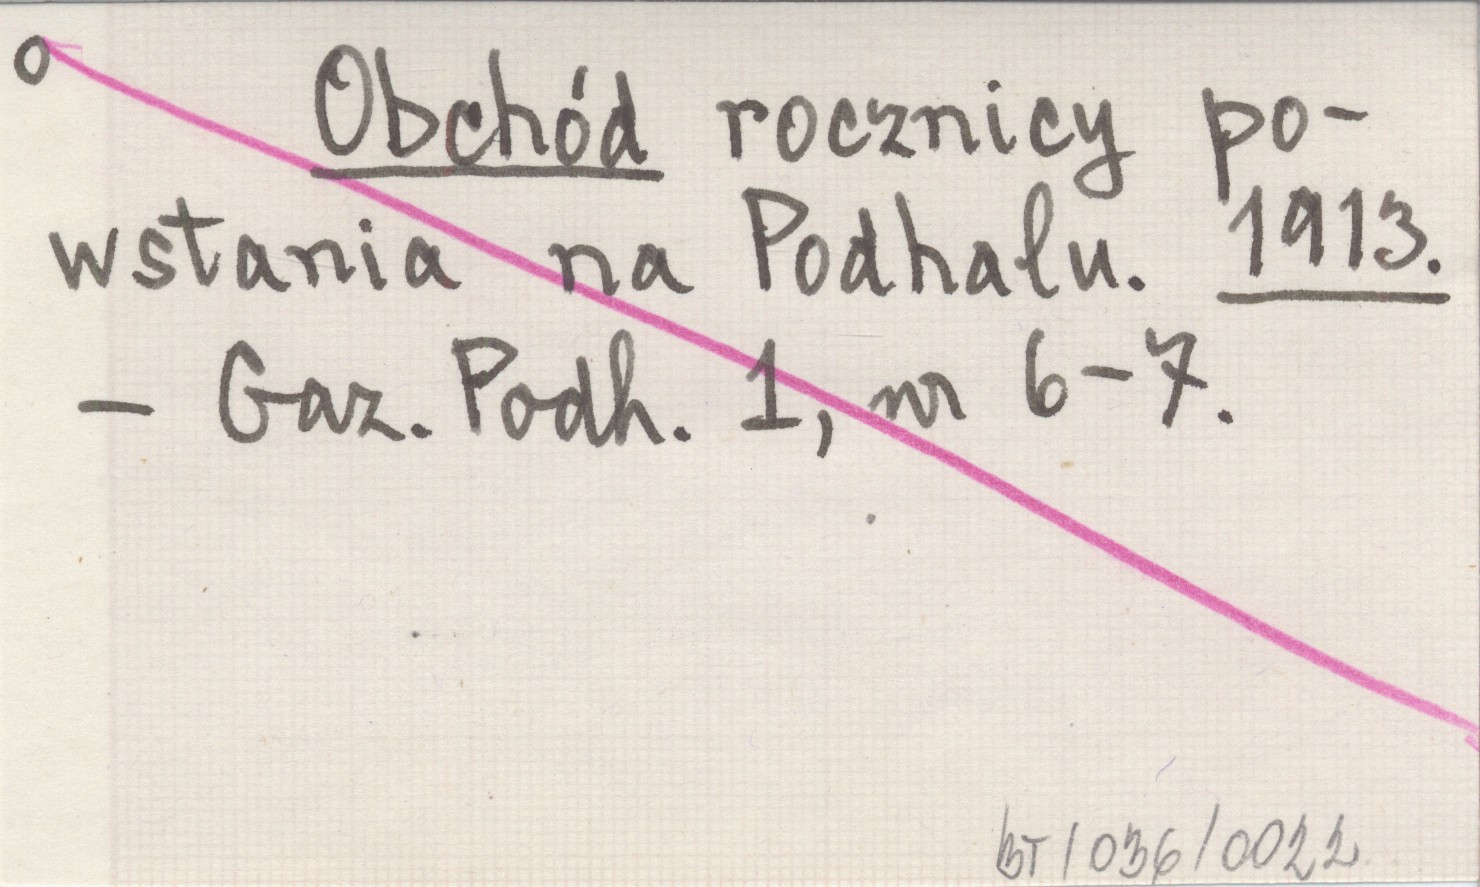 o
Obchód rocznicy po-
wstania na Podhalu. 1913.
- Gaz. Podh. 1, nr 6-7.
BT/036/0022